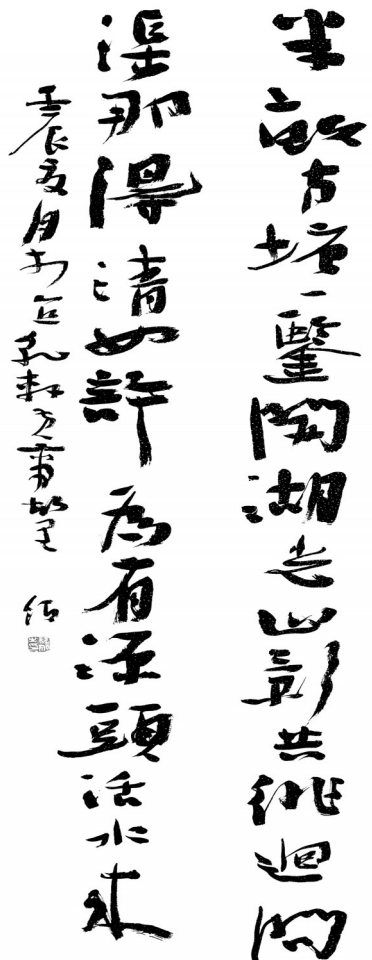 半畝方塘一鑒開湖光山影共徘迴問
渠那得清如許為有源頭活水來
壬辰夏月於